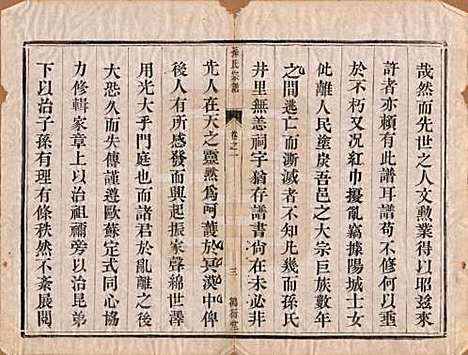 哉然而先世之人文勲業得以昭茲來
許者亦頼有此譜耳譜苟不修何以永
於不朽又况紅巾擾亂竊據陽城士女
仳離人民塗炭吾邑之大宗巨族數年
之間逃亡而澌滅者不知凡幾而孫氏
井里無恙祠宇猶存譜書尚在未必非
孫氏宗譜
卷之一
三
先人在天之靈黙爲呵護於冥漠中俾
後人有所感發而興起振家聲綿世澤
用光大乎門庭也而以於亂離之後
大恐久而失傳謹遵歐蘇定式同心協
力修輯家章上以治祖禰旁以治昆弟
下以治子孫有理有條秩然不紊展閲